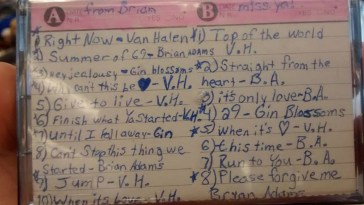 A from Brian
B miss ya!
*1) Right Now - Van Halen
2) Summer of 69 - Brian Adams
3) Hey jealousy - Gin blossoms
4) Why can't this be ♥ - V.H.
5) Give to live - V.H.
*6) Finish what Ya Started - V.H.
*7) Until I fall away - Gin
8) Can't Stop this thing we
Started - Brian Adams
9) Jump - V.H.
10) When it's love - V.H.
*1) Top of the world
V.H.
*2) Straight from the
heart - B.A.
3) it's only love - B.A.
*4) 29 - Gin Blossoms
*5) when it's ♡ - V.H.
6) this time - B.A.
7) Run to You - B.A.
*8) Please forgive me
Bryan Adams